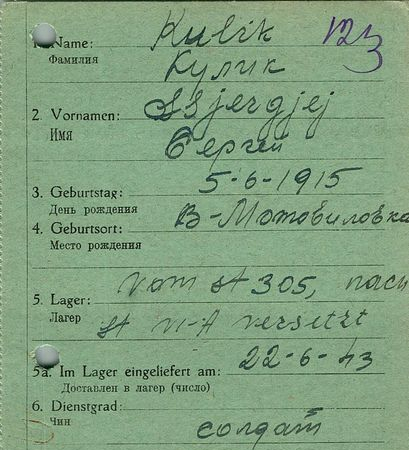 1. Name: Kulik 123
Фамилия Кулик
2. Vornamen: Ssjergjej
Имя Сергей
3. Geburtstag: 5-6-1915
День рождения
4. Geburtsort: В-Мотовиловка
Место рождения
vom st 305, nach
5. Lager:
Лагер st VI-A versetzt
5a. Im Lager eingeliefert am: 22-6-43
Доставлен в лагер (число)
6. Dienstgrad:
Чин солдат